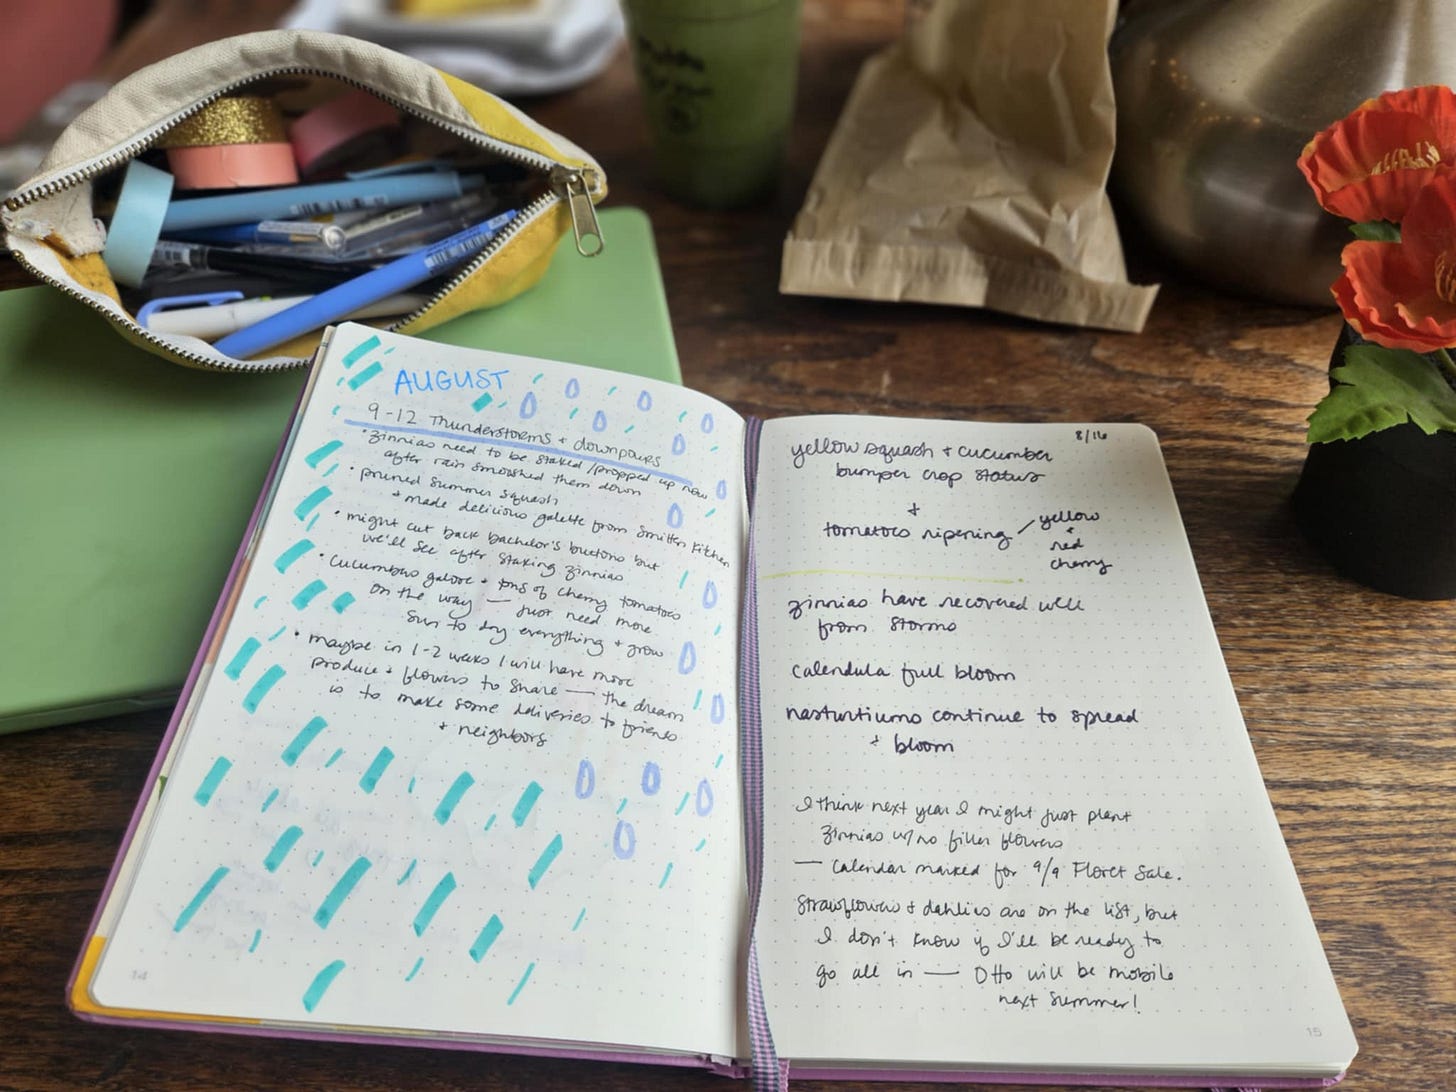 AUGUST
9-12 Thunderstorms + downpours
• zinnias need to be staked/propped up now
after rain smooshed them down
• pruned summer squash
+ made delicious galette from Smitten Kitchen
• might cut back bachelor's buttons but
we'll see after staking zinnias
• cucumbers galore + tons of cherry tomatoes
on the way — just need more
sun to dry everything + grow
• maybe in 1-2 weeks I will have more
produce + flowers to share — the dream
is to make some deliveries to friends
+ neighbors
14
8/16
yellow squash + cucumber
bumper crop status
+
tomatoes ripening
yellow
+
red
cherry
zinnias have recovered well
from storms
calendula full bloom
nasturtiums continue to spread
+ bloom
I think next year I might just plant
zinnias w/ no filler flowers
— calendar marked for 9/9 Floret Sale.
Strawflowers + dahlias are on the list, but
I don't know if I'll be ready to
go all in — Otto will be mobile
next summer!
15